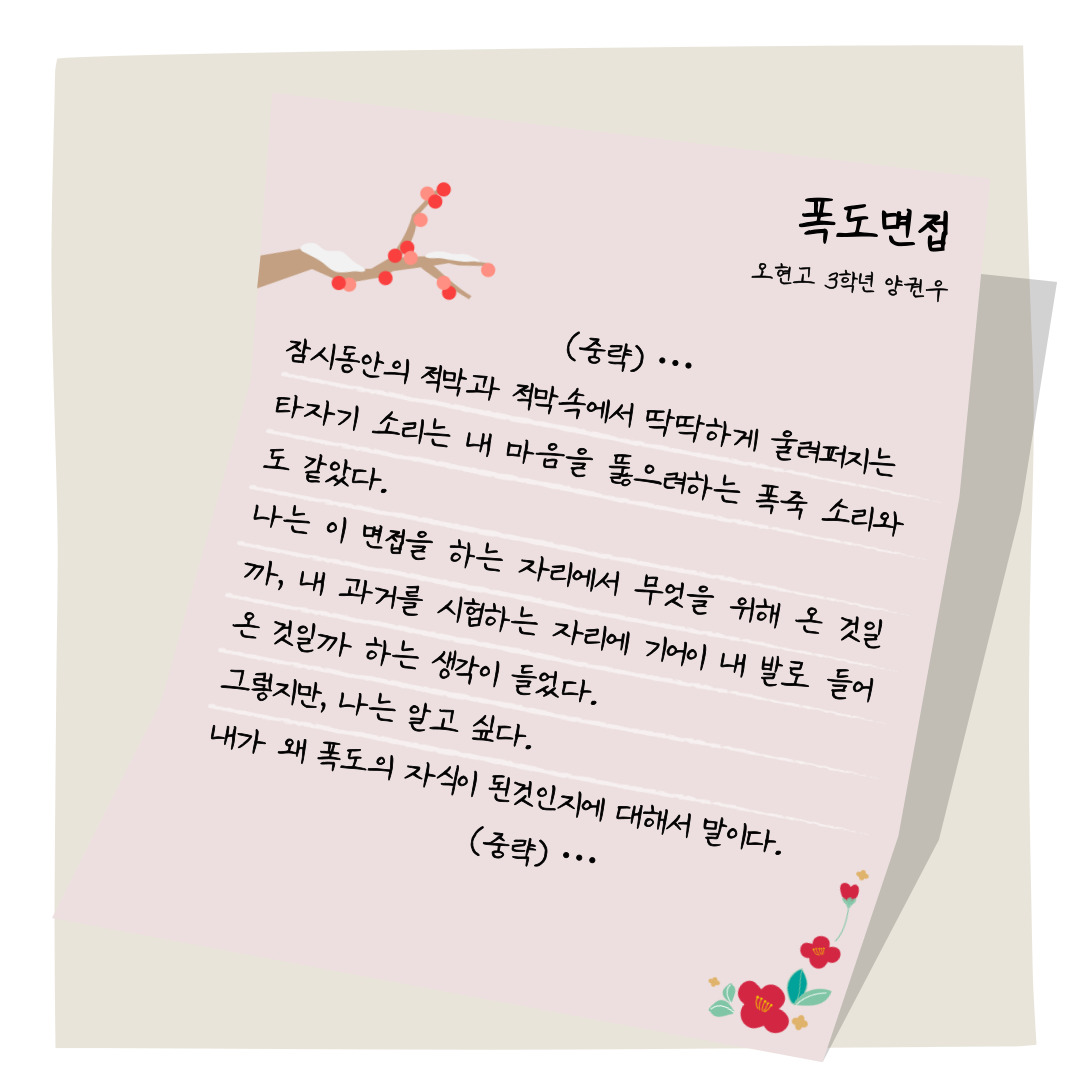 폭도면접
오현고 3학년 양권우
(중략) •••
잠시동안의 적막과 적막속에서 딱딱하게 울려퍼지는
타자기 소리는 내 마음을 뚫으려하는 폭죽 소리와
도 같았다.
나는 이 면접을 하는 자리에서 무엇을 위해 온 것일
까, 내 과거를 시험하는 자리에 기어이 내 발로 들어
온 것일까 하는 생각이 들었다.
그렇지만, 나는 알고 싶다.
내가 왜 폭도의 자식이 된것인지에 대해서 말이다.
(중략) •••